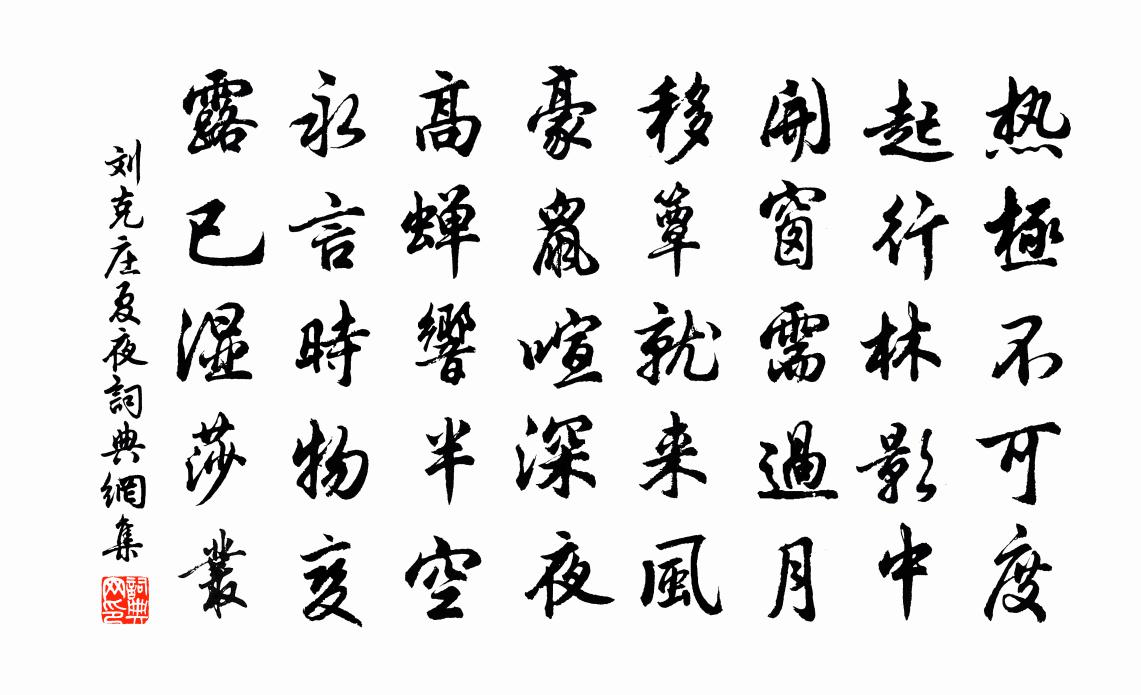 热極不可度
起行林影中
開窗需過月
移簟就来風
豪鼠喧深夜
高蝉響半空
永言時物变
露已濕莎叢
刘克庄夏夜詞典網集
詞典网印